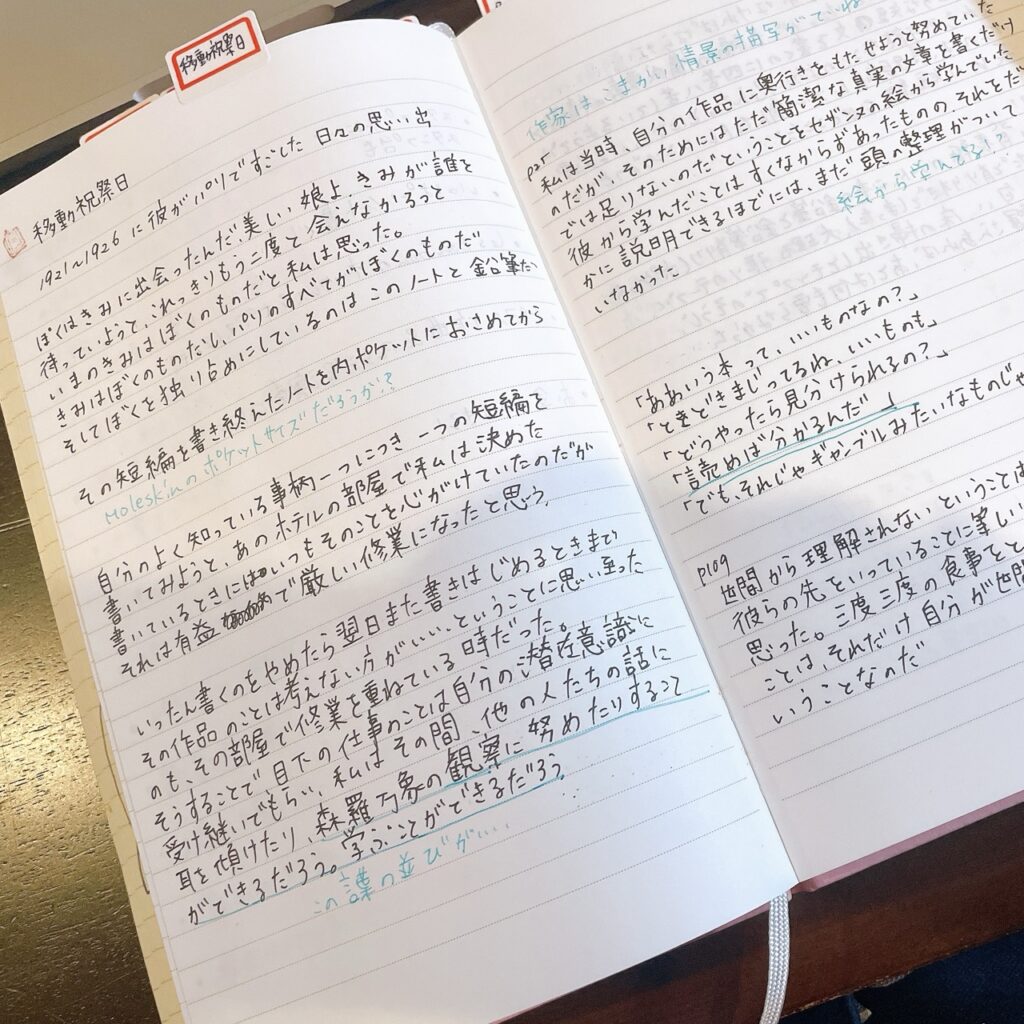 移動祝祭日
移動祝祭日
1921〜1926 に彼がパリですごした 日々の思い出
ぼくはきみに出会ったんだ、美しい娘よ。きみが誰を
待っていようと、これっきりもう二度と会えなかろうと
いまのきみはぼくのものだと私は思った。
きみはぼくのものだし、パリのすべてがぼくのものだ
そしてぼくを独り占めにしているのは このノートと 鉛筆だ
その短編を書き終えたノートを内ポケットにおさめてから
Moleskinのポケットサイズだろうか?
自分のよく知っている事柄一つにつき 一つの短編を
書いてみようと、あのホテルの部屋で私は決めた
書いているときにはいつもそのことを心がけていたのだが
それは有益 で厳しい修業になったと思う。
いったん書くのをやめたら翌日また書きはじめるときまで
その作品のことは考えない方がいい、ということに思い至った
のも、その部屋で修業を重ねている時だった。
そうすることで目下の仕事のことは自分の潜在意識に
受け継いでもらい、私はその間、他の人たちの話に
耳を傾けたり、森羅万象の観察に努めたりすること
ができるだろう。学ぶことができるだろう。
この言葉の並びがいい…
作家はこまかい情景の描写がていね
p25
私は当時、自分の作品に奥行きをもたせようと努めていた
のだが、そのためにはただ簡潔な真実の文章を書くだけ
では足りないのだということをセザンヌの絵から学んでいた
彼から学んだことはすくなからずあったものの それとだ
かに説明できるほどには、まだ頭の整理がついて
いなかった
絵から学んでる!?
「ああいう本って、いいものなの?」
「ときどきまじってるね、いいものも」
「どうやったら見分けられるの?」
「読めば分かるんだ」
「でも、それじゃギャンブルみたいなものじゃ
p109
世間から理解されない ということは
彼らの先をいっていることに等しい
思った。三度三度の食事をと
ことは、それだけ自分が世間
いうことなのだ